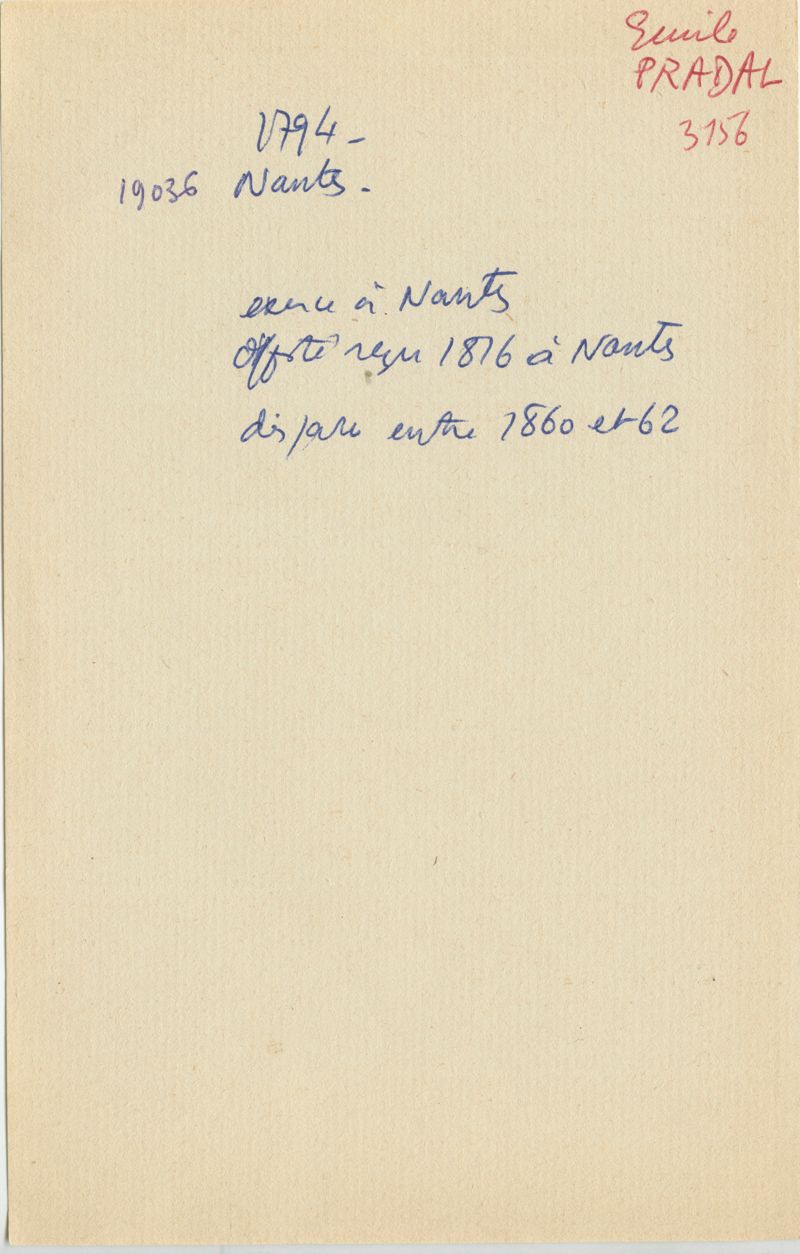 Emile
PRADAL
3156
1794 -
19036 Nantes -
exerce à Nantes
reçu 1816 à Nantes
disparu entre 1860 et 62